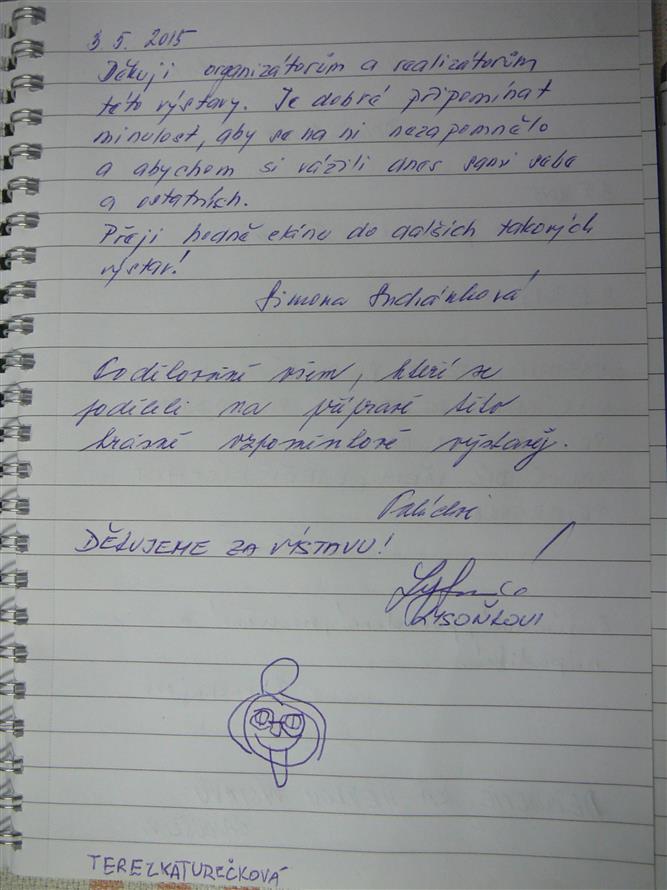 3. 5. 2015
Děkuji organizátorům a realizátorům
této výstavy. Je dobré připomínat
minulost, aby se na ni nezapomnělo
a abychom si vážili dnes sami sebe
a ostatních.
Přeji hodně elánu do dalších takových
výstav!
Simona
Poděkování všem, kteří se
podíleli na přípravě této
krásné vzpomínkové výstavy.
DĚKUJEME ZA VÝSTAVU!
LYSOŇKOVI
TEREZKATUREČKOVÁ